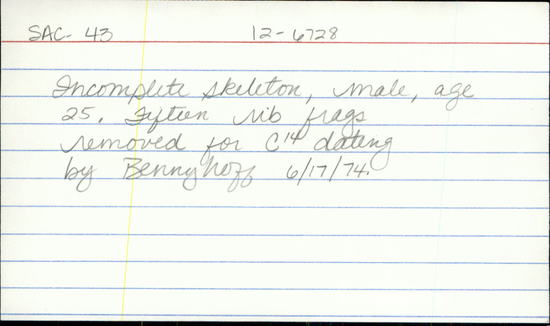 SAC- 43 12-6728
Incomplete skeleton, male, age
25. Fifteen rib frags
removed for C14 dating
by Bennyhoff 6/17/74.